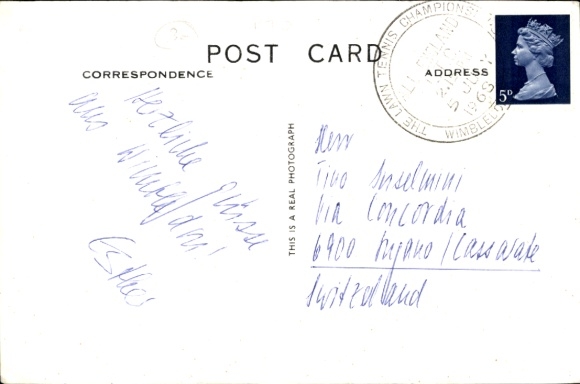 POST CARD
CORRESPONDENCE
ADDRESS
THE LAWN TENNIS CHAMPIONSHIPS
WIMBLEDON
JULY
1969
5D
Herzliche Grüsse
aus Wimbledon!
Esther
THIS IS A REAL PHOTOGRAPH
Herr
Tino Anselmini
Via Concordia
6900 Lugano / Cassarate
Switzerland